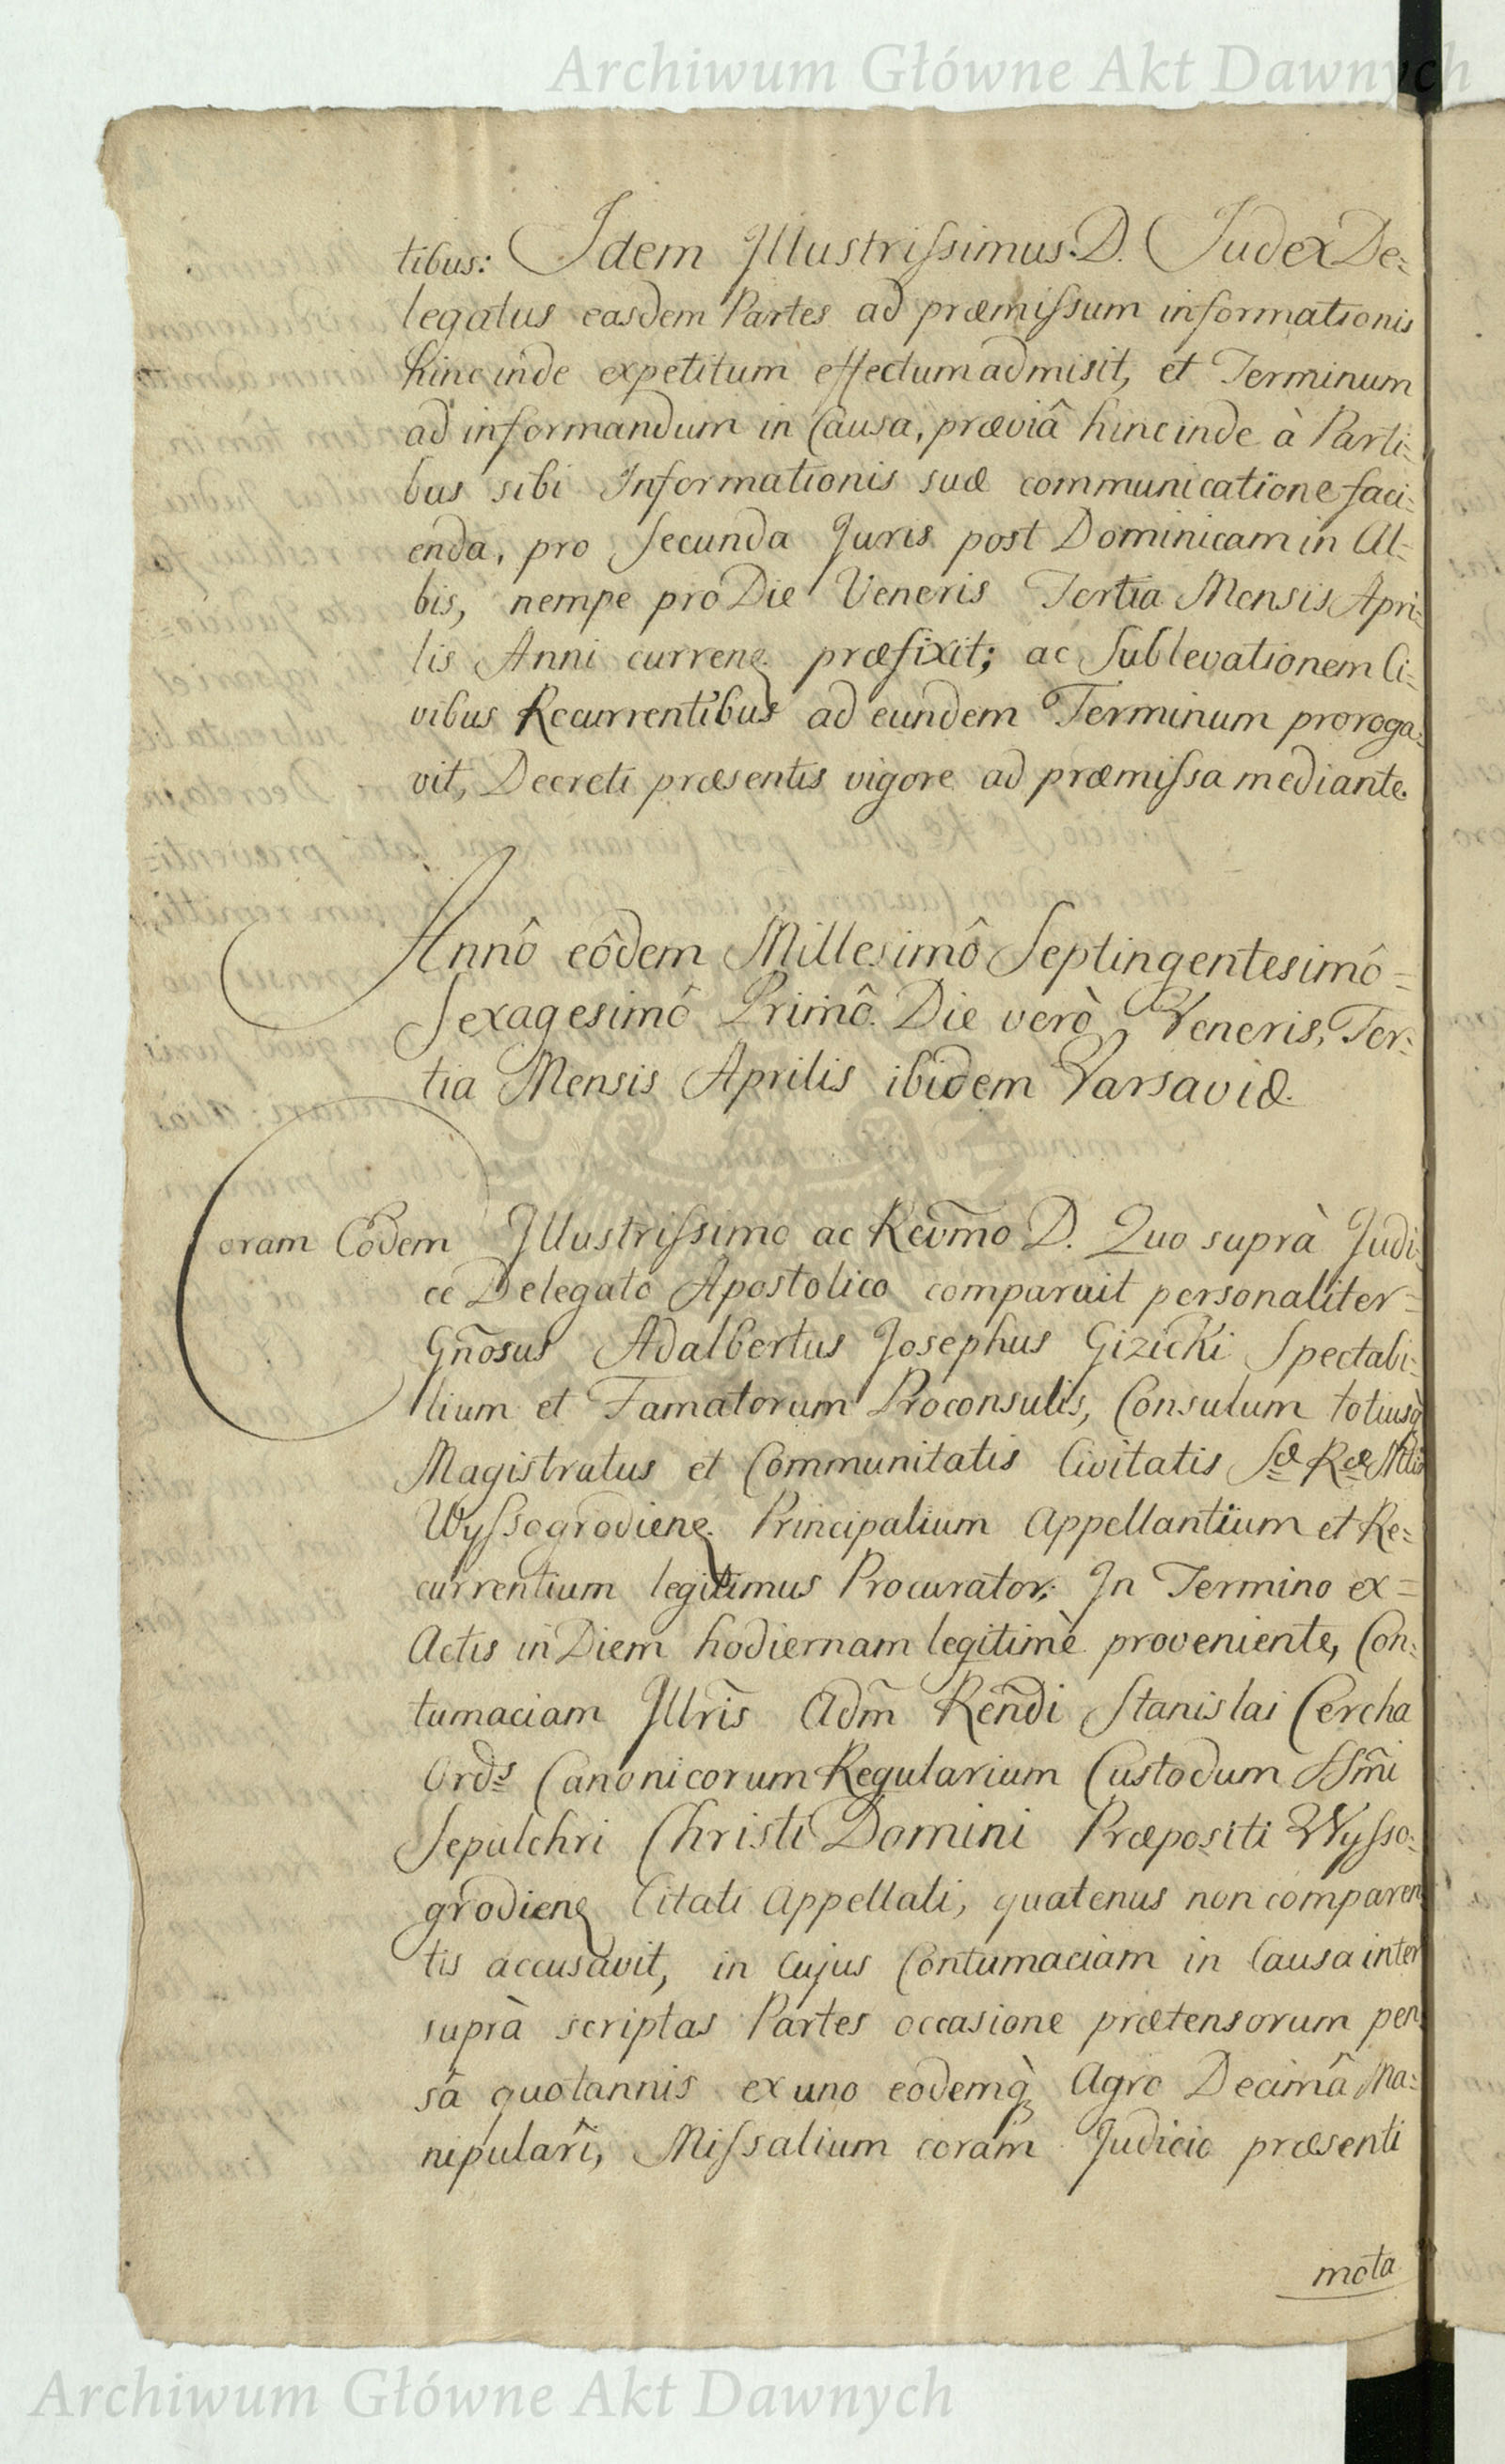 Archiwum Główne Akt Dawnych
tibus: Idem Illustrissimus D. Judex De=
legatus easdem Partes ad præmissum informationis
hinc inde expetitum effectum admisit, et Terminum
ad informandum in Causa, præviâ hinc inde à Parti=
bus sibi Informationis suæ communicatione faci=
enda, pro Secunda Juris post Dominicam in Al=
bis, nempe pro Die Veneris Tertia Mensis Apri=
lis Anni curren. præfixit; ac Sublevationem Ci=
vibus Recurrentibus ad eundem Terminum proroga=
vit, Decreti præsentis vigore ad præmissa mediante.
Annô eôdem Millesimô Septingentesimô =
Sexagesimô Primô. Die verò Veneris, Ter=
tia Mensis Aprilis ibidem Varsaviæ.
Coram Eodem Illustrissimo ac Revmo D. Quo suprà Judi=
ce Delegato Apostolico comparuit personaliter =
Gnosus Adalbertus Josephus Gizicki Spectabi=
lium et Famatorum Proconsulis, Consulum totiusq
Magistratus et Communitatis Civitatis Sæ Ræ Mtis
Wyssogrodien. Principalium Appellantium et Re=
currentium legitimus Procurator; In Termino ex =
Actis in Diem hodiernam legitimè proveniente, Con=
tumaciam Illris Adm Rendi Stanislai Cercha
Ords Canonicorum Regularium Custodum SSmi
Sepulchri Christi Domini Præpositi Wysso=
grodien Citati Appellati, quatenus non comparen
tis accusavit, in cujus Contumaciam in Causa inter
suprà scriptas Partes occasione prætensorum pen
sâ quotannis ex uno eodemq Agro Decimâ Ma=
nipulari, Missalium coram Judicio præsenti
mota
Archiwum Główne Akt Dawnych